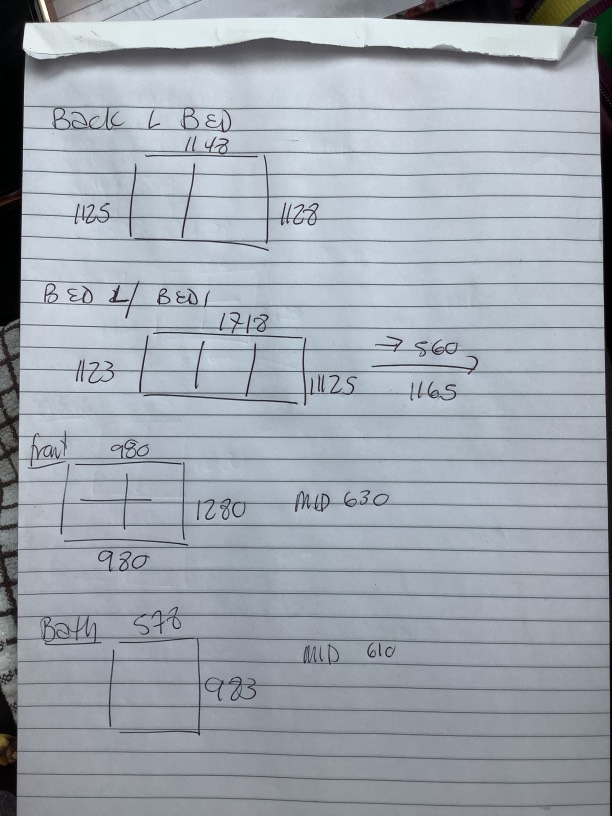 Back L BED
1148
1125 1128
BED L/ BED1
1718
1123 1125 → 560
1165
front 980
1280 MID 630
980
Bath 578
MID 610
983